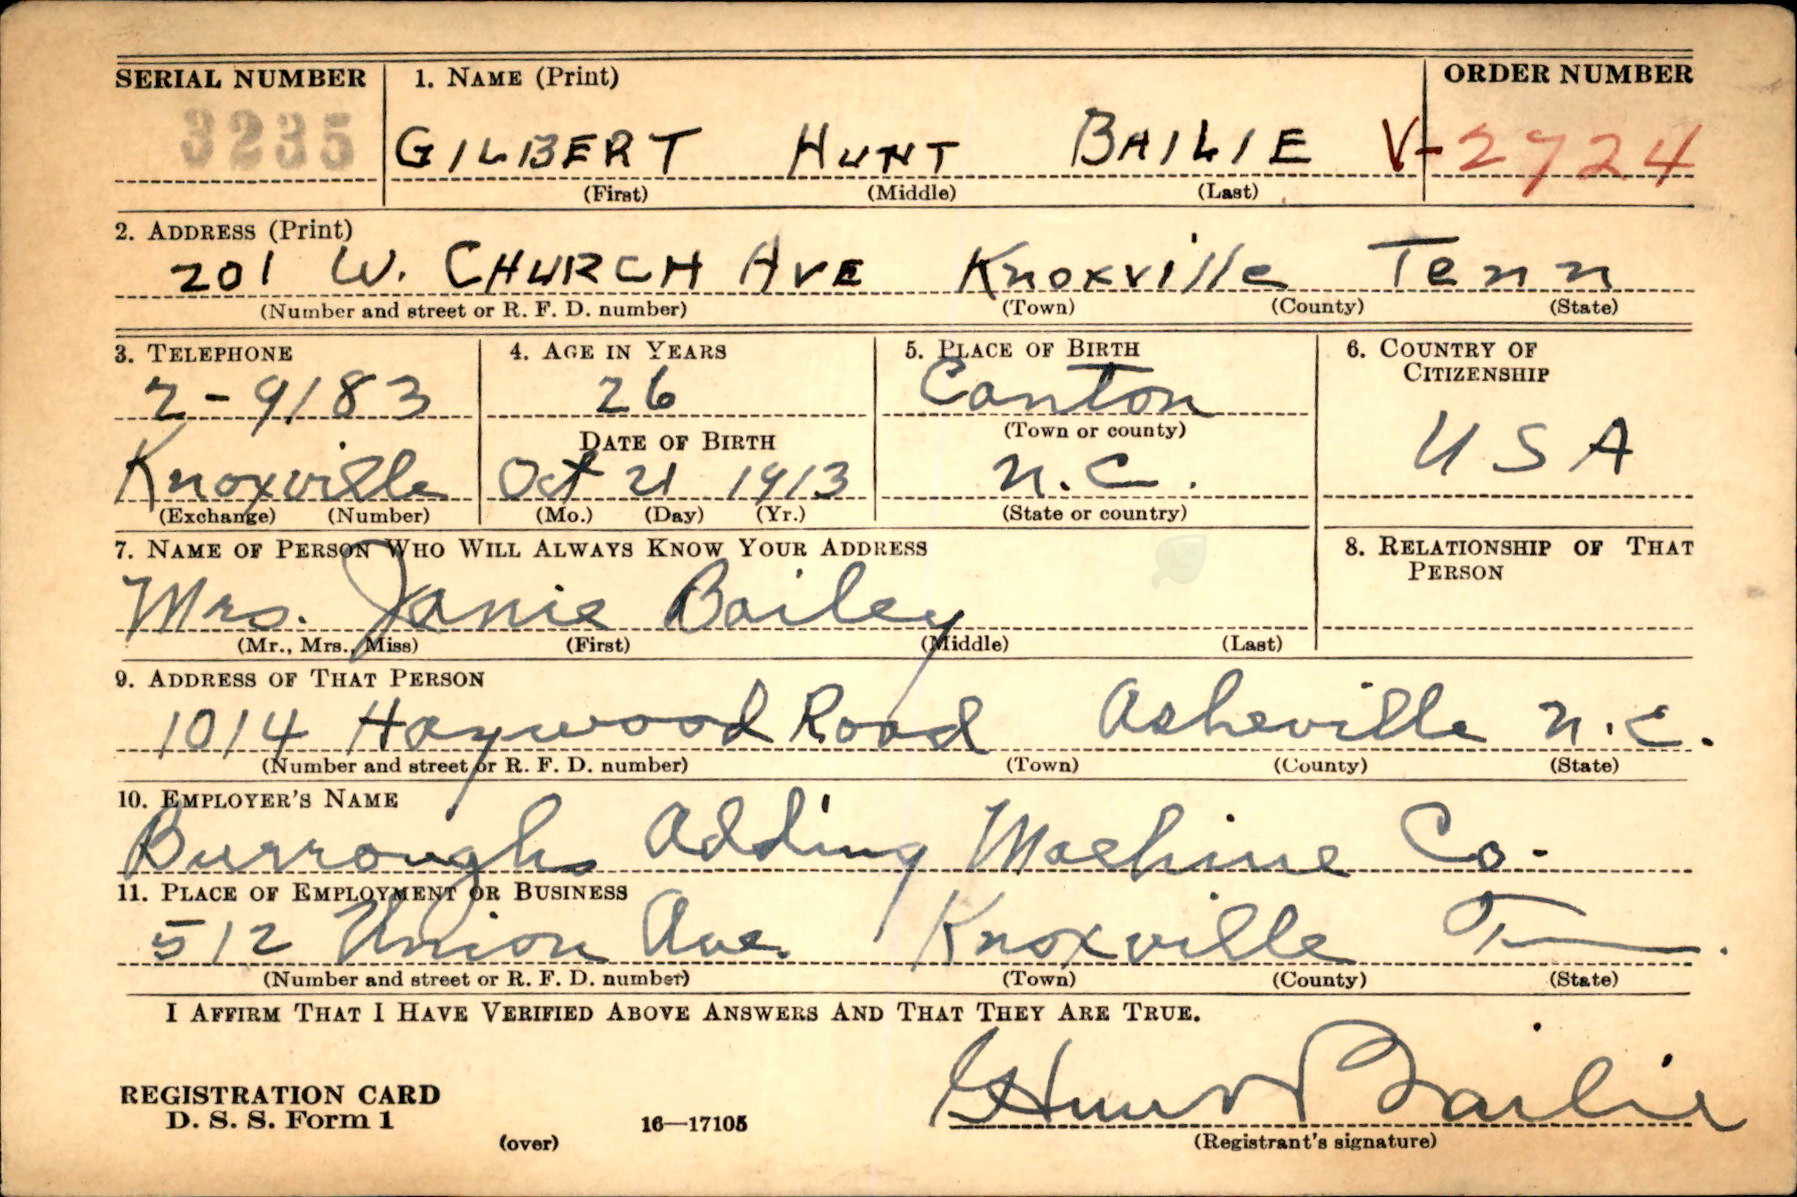 SERIAL NUMBER 1. NAME (Print) ORDER NUMBER
3235 GILBERT HUNT BAILIE V-2724
(First) (Middle) (Last)
2. ADDRESS (Print)
201 W. CHURCH AVE Knoxville Tenn
(Number and street or R. F. D. number) (Town) (County) (State)
3. TELEPHONE 4. AGE IN YEARS 5. PLACE OF BIRTH 6. COUNTRY OF CITIZENSHIP
2-9183 26 Canton
DATE OF BIRTH (Town or county) USA
Knoxville Oct 21 1913 N.C.
(Exchange) (Number) (Mo.) (Day) (Yr.) (State or country)
7. NAME OF PERSON WHO WILL ALWAYS KNOW YOUR ADDRESS 8. RELATIONSHIP OF THAT PERSON
Mrs. Janie Bailey
(Mr., Mrs., Miss) (First) (Middle) (Last)
9. ADDRESS OF THAT PERSON
1014 Haywood Road Asheville N.C.
(Number and street or R. F. D. number) (Town) (County) (State)
10. EMPLOYER'S NAME
Burroughs Adding Machine Co.
11. PLACE OF EMPLOYMENT OR BUSINESS
512 Union Ave. Knoxville
(Number and street or R. F. D. number) (Town) (County) (State)
I AFFIRM THAT I HAVE VERIFIED ABOVE ANSWERS AND THAT THEY ARE TRUE.
G Hunt Bailie
REGISTRATION CARD
D. S. S. Form 1 16—17105
(over) (Registrant's signature)